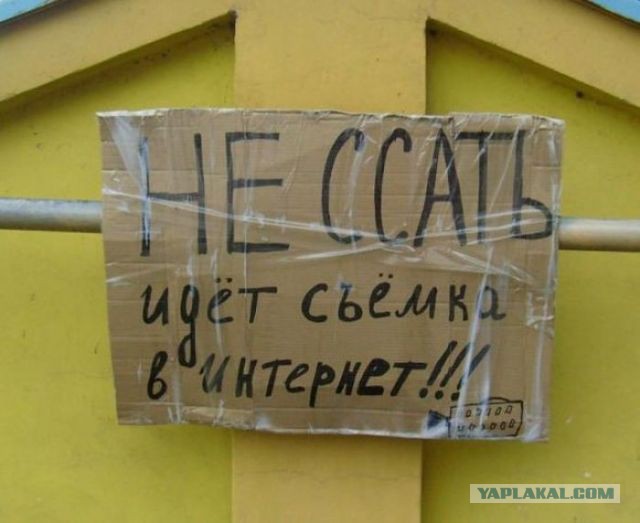 НЕ ССАТЬ
идёт съёмка
в интернет!!!
YAPLAKAL.COM